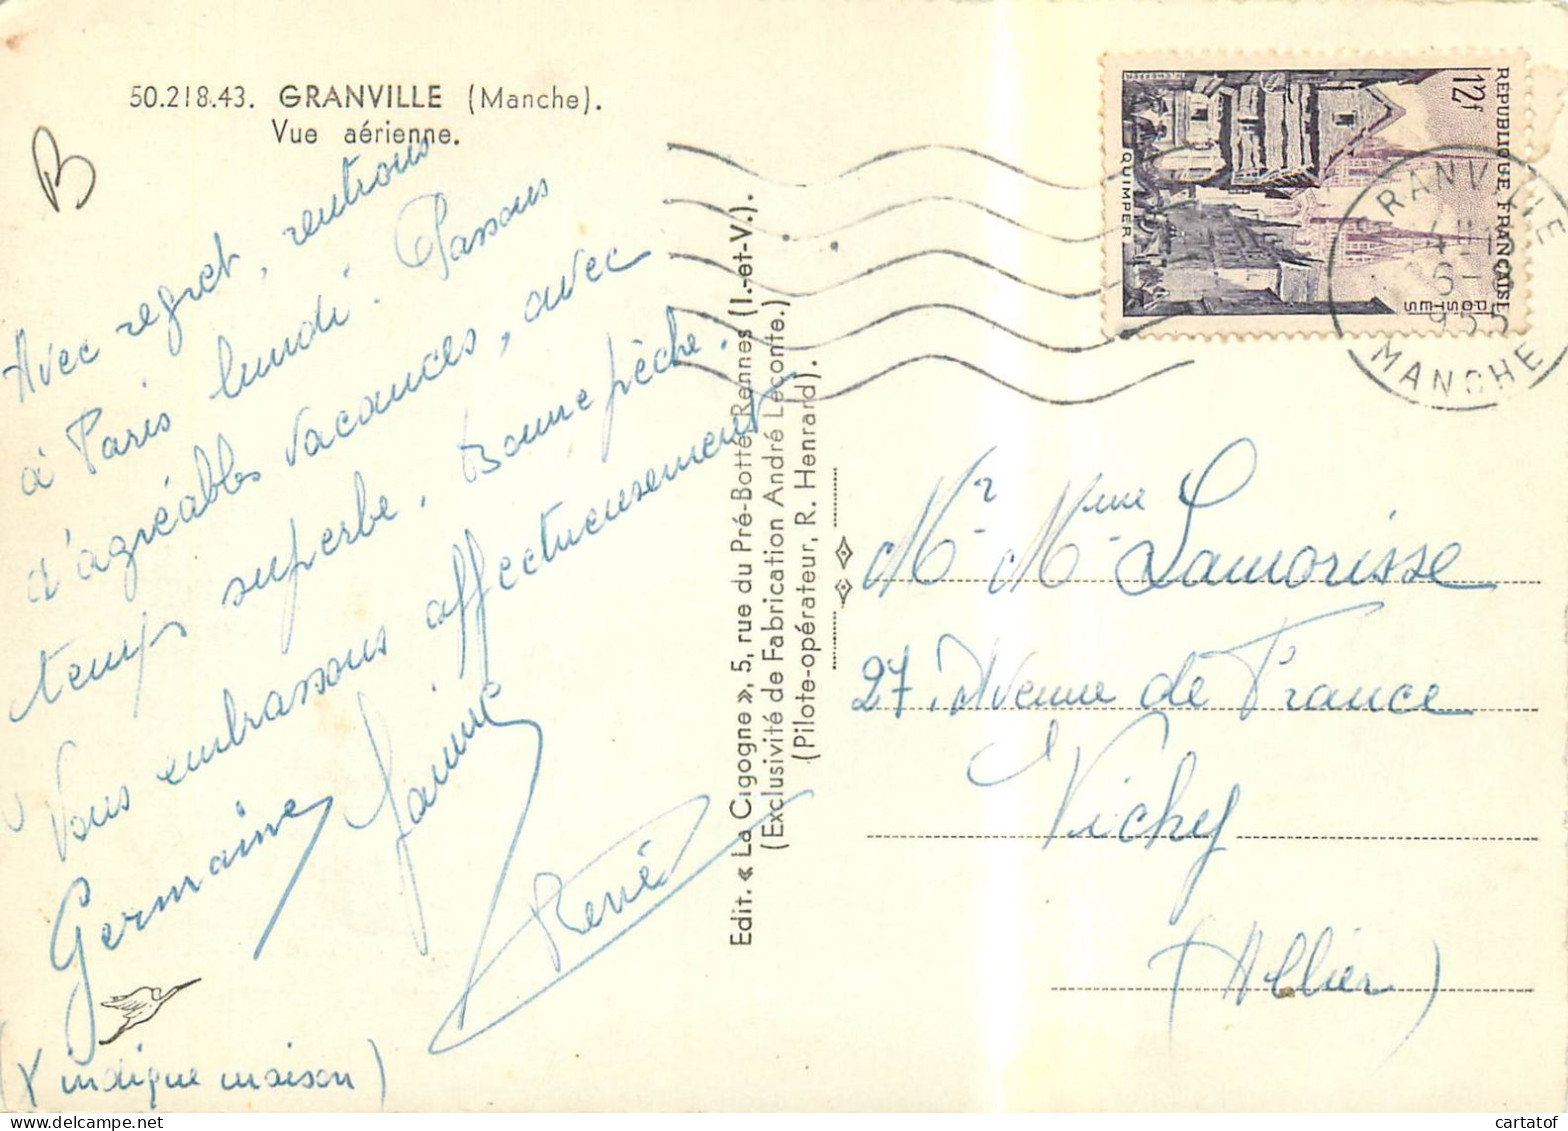 50.218.43. GRANVILLE (Manche).
Vue aérienne.
B
Avec regret, rentrons
à Paris lundi. Passons
d'agréables vacances, avec
temps superbe. Bonne pêche.
Vous embrassons affectueusement
Germaine
René
(X indique maison)
Edit. « La Cigogne », 5, rue du Pré-Botté-Rennes (I.-et-V.).
(Exclusivité de Fabrication André Leconte.)
(Pilote-opérateur, R. Henrard).
REPUBLIQUE FRANÇAISE
POSTES
12f
QUIMPER
GRANVILLE
MANCHE
Mr Mme Lamorisse
27, Avenue de France
Vichy
(Allier)
cartatof